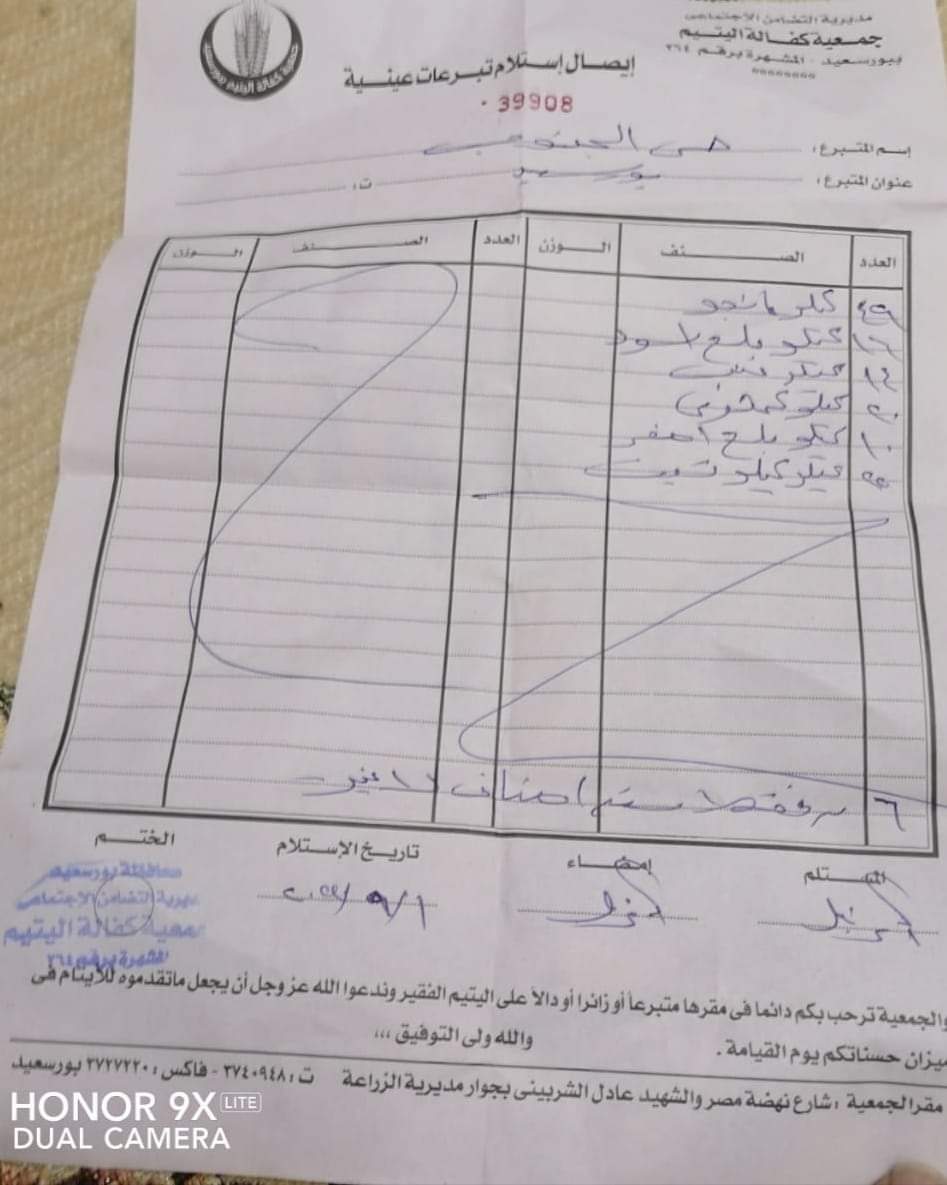 مديرية التضامن الاجتماعى
جمعية كفالة اليتيم
ببورسعيد - المشهرة برقم ٢٦٤
جمعية كفالة اليتيم ببورسعيد
إيصال إستلام تبرعات عينية
39908
إسم المتبرع : حى الجنوب
عنوان المتبرع : بورسعيد ت :
العدد الصنف الوزن العدد الصنف الوزن
٤٩ كيلو مانجو
١٦ كيلو بلح اسود
١٤ كيلو عنب
٢٠ كيلو كمثرى
١٠ كيلو بلح اصفر
كيلو تين
٦ فقط ستة اصناف لا غير
المستلم إمضاء تاريخ الإستلام الختم
٢٠٢٢/٩/١
محافظة بورسعيد
مديرية التضامن الاجتماعى
جمعية كفالة اليتيم
المشهرة برقم ٢٦٤
والجمعية ترحب بكم دائما فى مقرها متبرعاً أو زائرا أو دالاً على اليتيم الفقير وندعوا الله عز وجل أن يجعل ماتقدموه للأيتام فى
ميزان حسناتكم يوم القيامة . والله ولى التوفيق ،،،
مقر الجمعية : شارع نهضة مصر والشهيد عادل الشربينى بجوار مديرية الزراعة ت : ٣٧٤٠٩٤٨ - فاكس : ٣٧٢٧٢٢٠ بورسعيد
HONOR 9X LITE
DUAL CAMERA